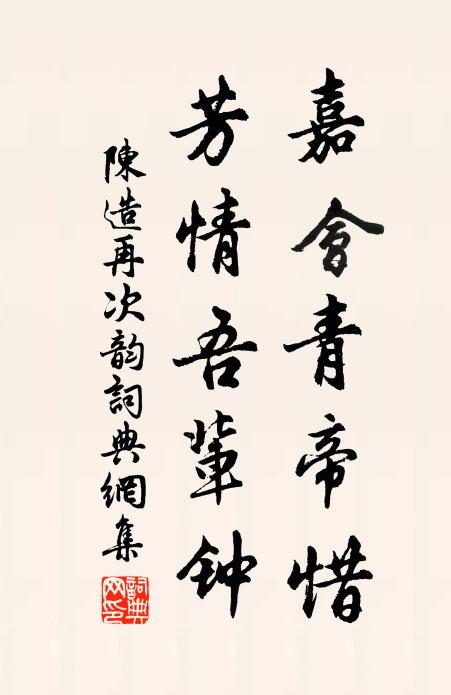 嘉會青帝惜
芳情吾輩钟
陳造再次韵詞典網集
詞典网印